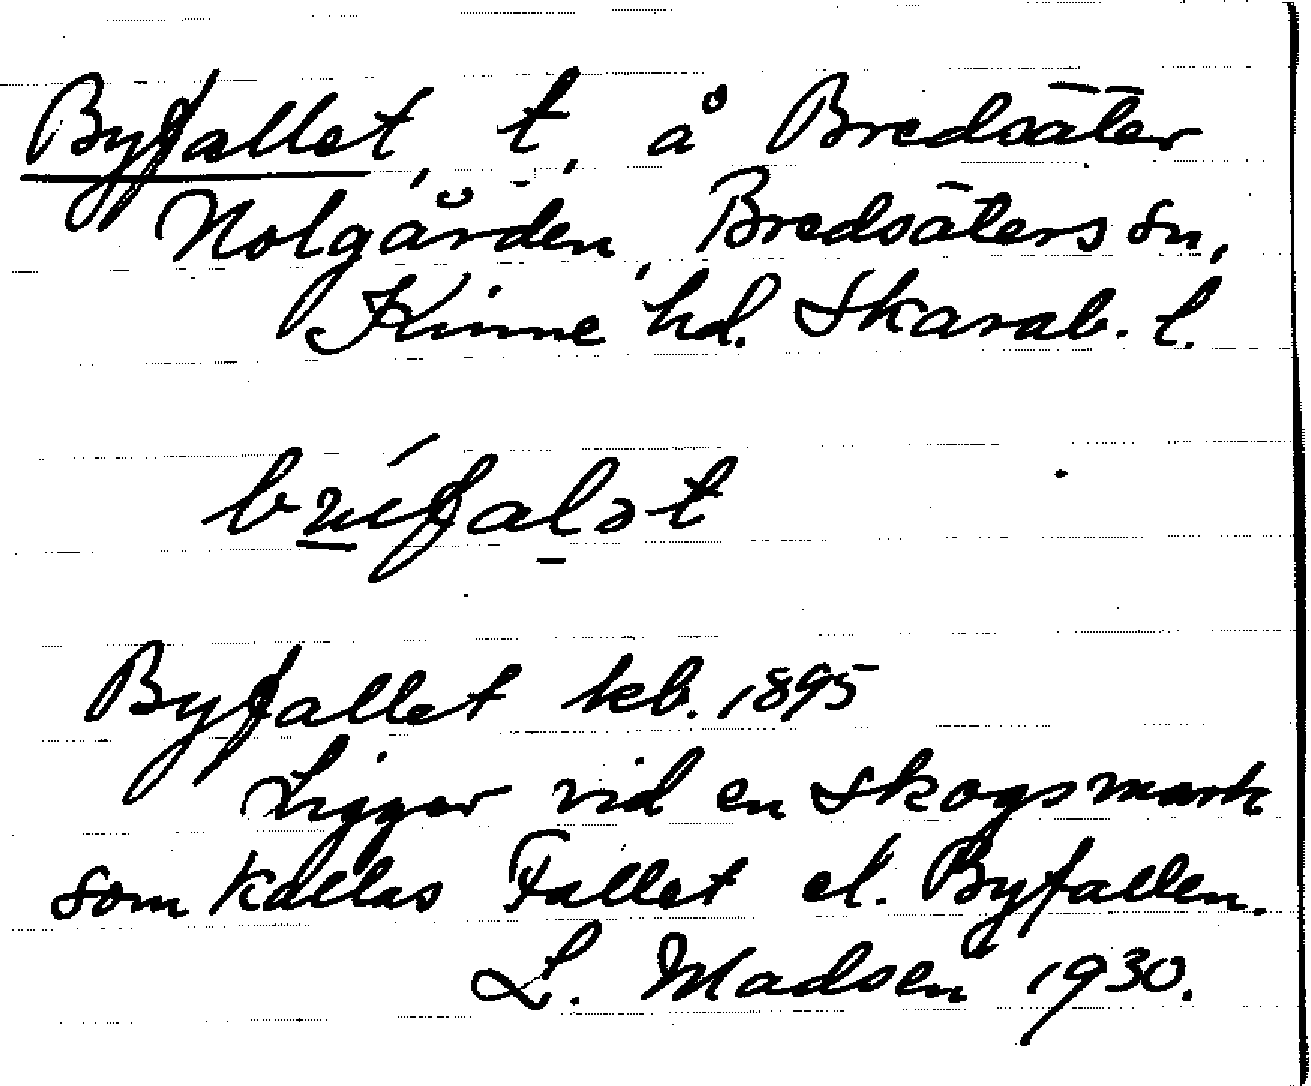 Byfallet, t, å Bredsäter
Nolgården, Bredsäters sn,
Kinne hd. Skarab. l.
Byfallet kb. 1895
Ligger vid en skogsmark
som kallas Fallet el. Byfallen.
L. Madsen 1930.